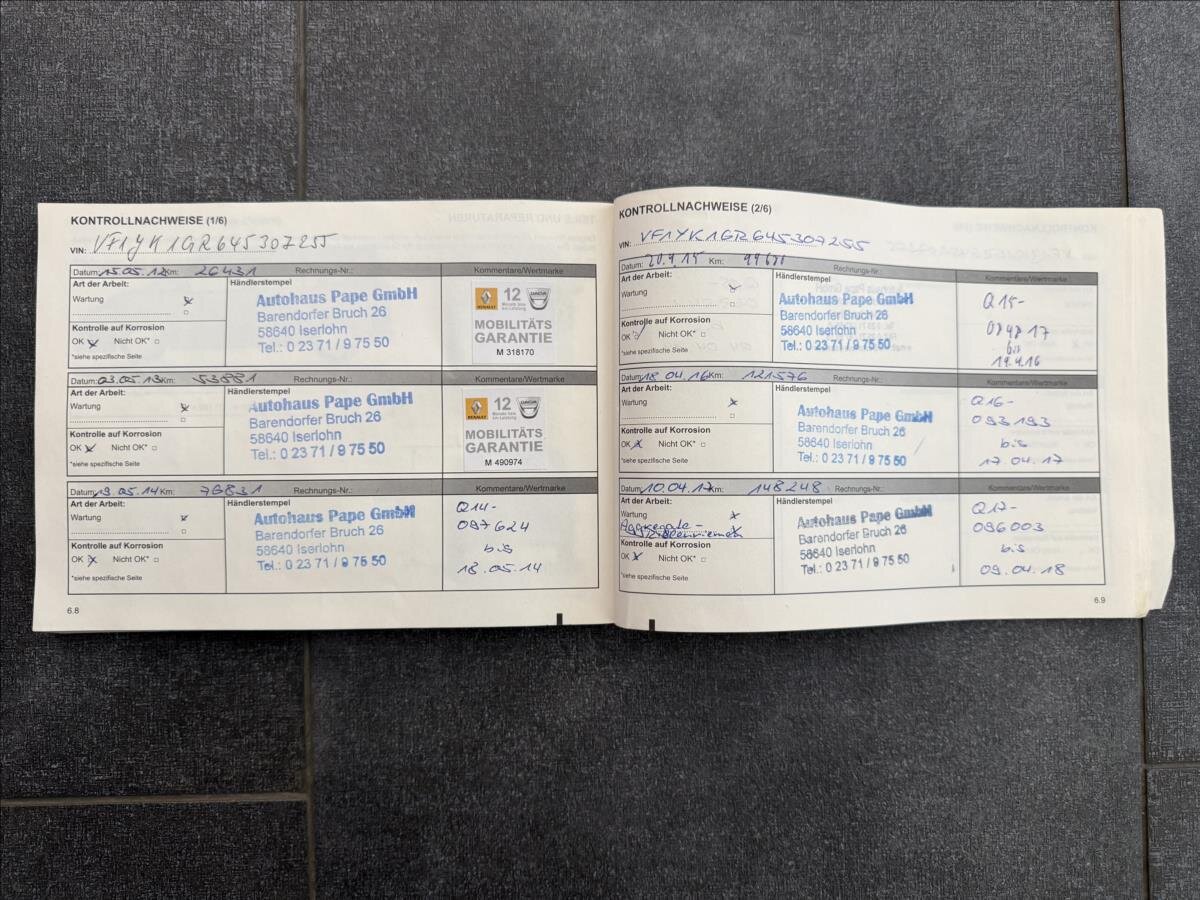 KONTROLLNACHWEISE (1/6)
VIN: VF1YK1GR645307255
Datum: 15.05.12 Km: 26431 Rechnungs-Nr.: Kommentare/Wertmarke
Art der Arbeit: Händlerstempel
Wartung
Kontrolle auf Korrosion
OK Nicht OK*
*siehe spezifische Seite
Autohaus Pape GmbH
Barendorfer Bruch 26
58640 Iserlohn
Tel.: 0 23 71 / 9 75 50
RENAULT 12 DACIA
MOBILITÄTS
GARANTIE
M 318170
Datum: 03.05.13 Km: 53881 Rechnungs-Nr.: Kommentare/Wertmarke
Art der Arbeit: Händlerstempel
Wartung
Kontrolle auf Korrosion
OK Nicht OK*
*siehe spezifische Seite
Autohaus Pape GmbH
Barendorfer Bruch 26
58640 Iserlohn
Tel.: 0 23 71 / 9 75 50
RENAULT 12 DACIA
MOBILITÄTS
GARANTIE
M 490974
Datum: 19.05.14 Km: 76831 Rechnungs-Nr.: Kommentare/Wertmarke
Art der Arbeit: Händlerstempel
Wartung
Kontrolle auf Korrosion
OK Nicht OK*
*siehe spezifische Seite
Autohaus Pape GmbH
Barendorfer Bruch 26
58640 Iserlohn
Tel.: 0 23 71 / 9 75 50
Q14-
097624
bis
18.05.14
6.8
KONTROLLNACHWEISE (2/6)
VIN: VF1YK1GR645307255
Datum: 20.4.15 Km: Rechnungs-Nr.: Kommentare/Wertmarke
Art der Arbeit: Händlerstempel
Wartung
Kontrolle auf Korrosion
OK Nicht OK*
*siehe spezifische Seite
Autohaus Pape GmbH
Barendorfer Bruch 26
58640 Iserlohn
Tel.: 0 23 71 / 9 75 50
Q15-
084817
bis
19.4.16
Datum: 18.04.16 Km: 121576 Rechnungs-Nr.: Kommentare/Wertmarke
Art der Arbeit: Händlerstempel
Wartung
Kontrolle auf Korrosion
OK Nicht OK*
*siehe spezifische Seite
Autohaus Pape GmbH
Barendorfer Bruch 26
58640 Iserlohn
Tel.: 0 23 71 / 9 75 50
Q16-
093193
bis
17.04.17
Datum: 10.04.17 Km: 148248 Rechnungs-Nr.: Kommentare/Wertmarke
Art der Arbeit: Händlerstempel
Wartung
Aggregate-
Kontrolle auf Korrosion
OK Nicht OK*
*siehe spezifische Seite
Autohaus Pape GmbH
Barendorfer Bruch 26
58640 Iserlohn
Tel.: 0 23 71 / 9 75 50
Q17-
096003
bis
09.04.18
6.9